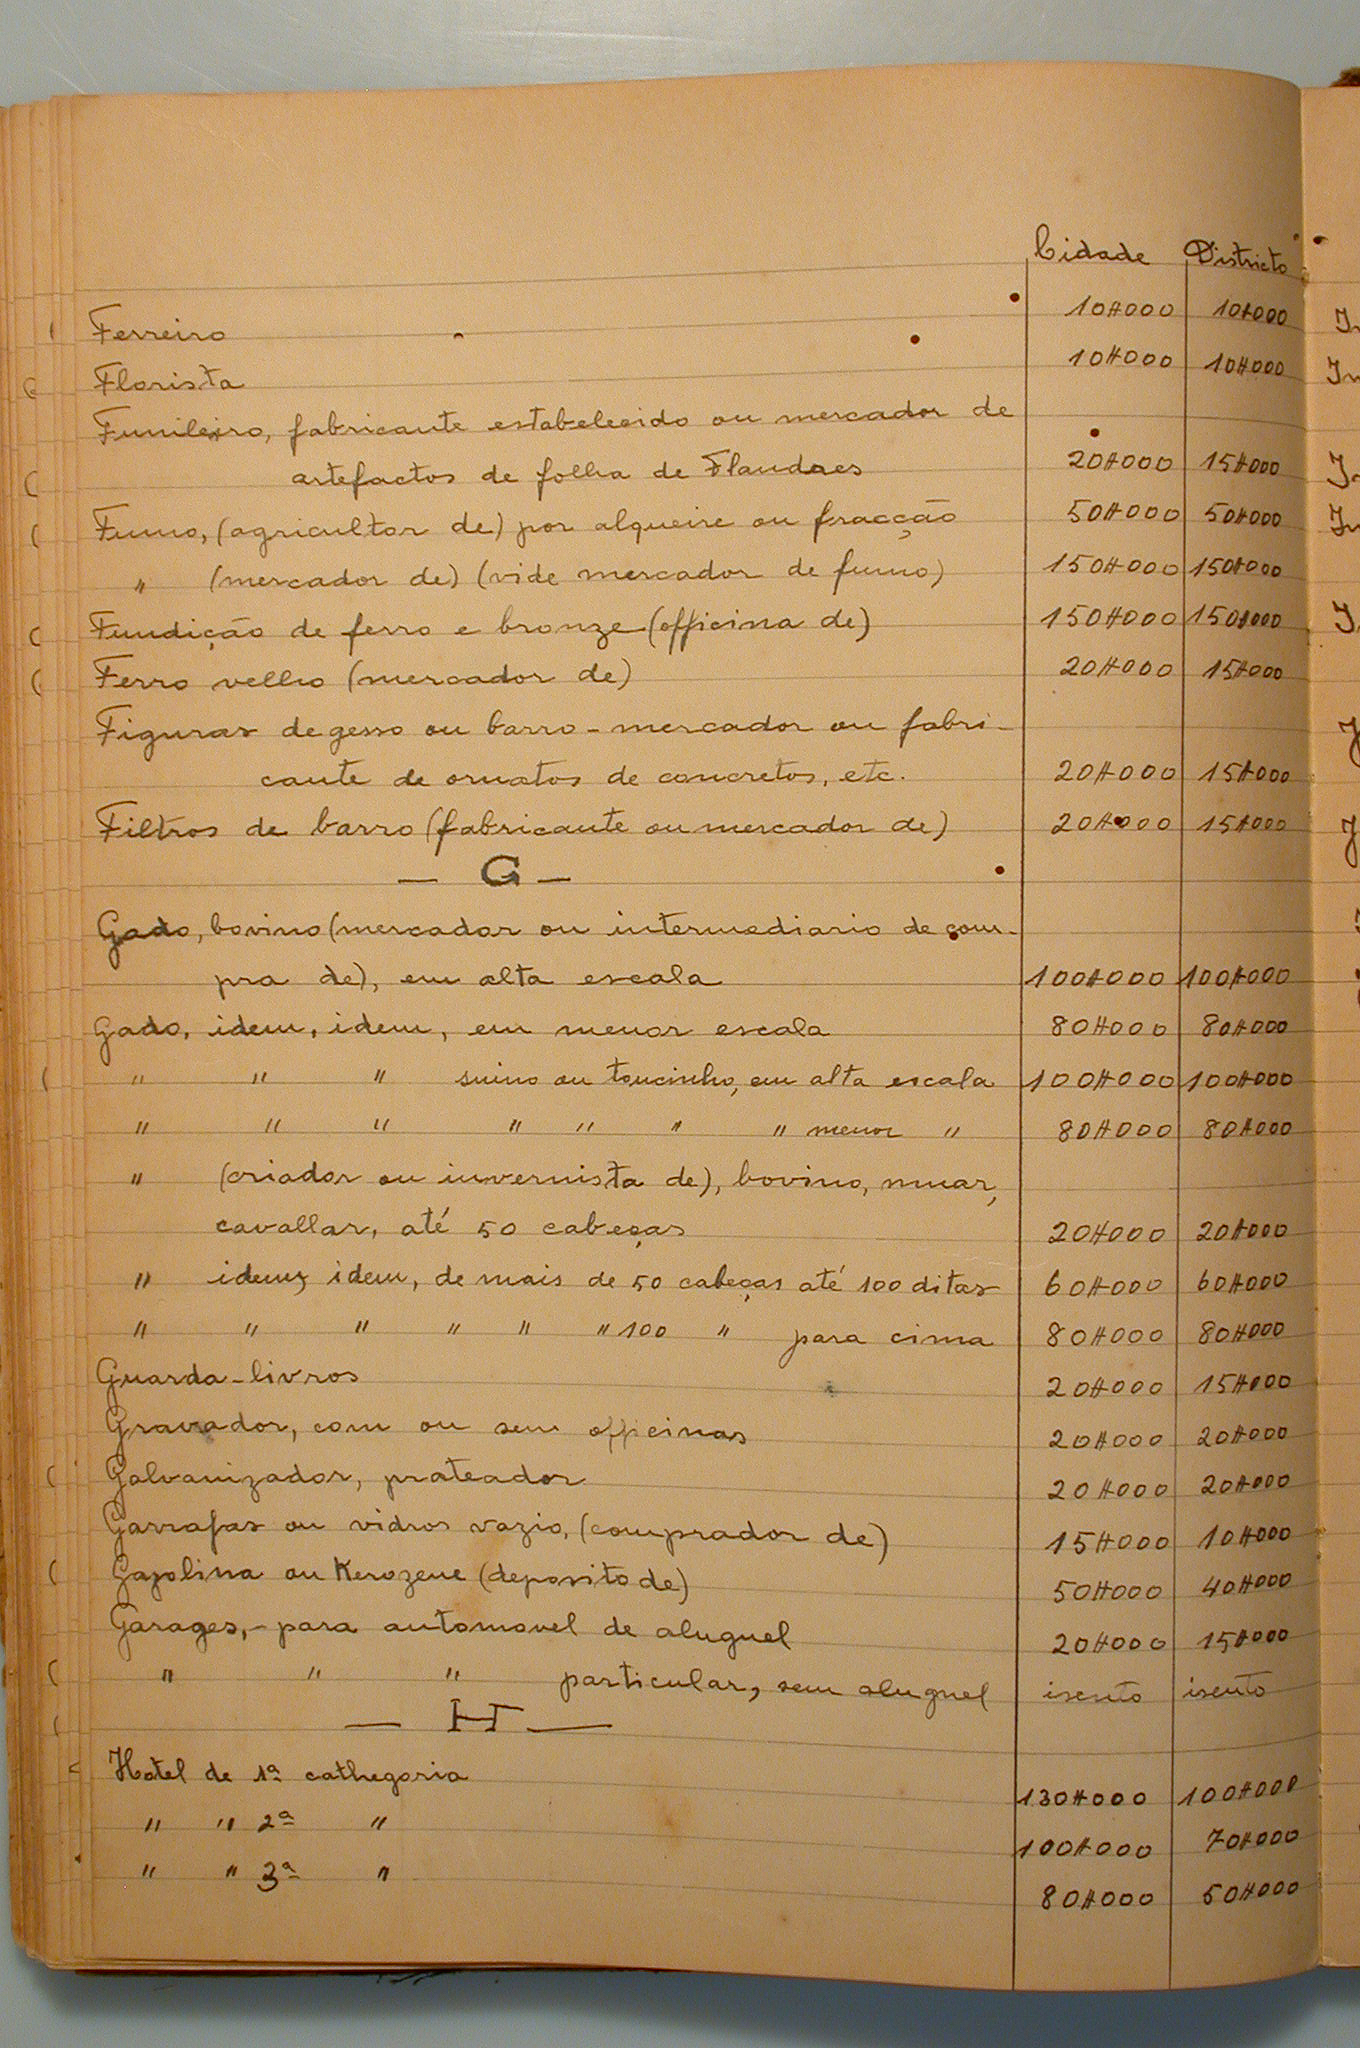 Cidade Districto
Ferreiro 10$000 10$000
Florista 10$000 10$000
Funileiro, fabricante estabelecido ou mercador de
artefactos de folha de Flandres 20$000 15$000
Fumo, (agricultor de) por alqueire ou fracção 50$000 50$000
" (mercador de) (vide mercador de fumo) 150$000 150$000
Fundição de ferro e bronze (officina de) 150$000 150$000
Ferro velho (mercador de) 20$000 15$000
Figuras de gesso ou barro - mercador ou fabri-
cante de ornatos de concretos, etc. 20$000 15$000
Filtros de barro (fabricante ou mercador de) 20$000 15$000
— G —
Gado, bovino (mercador ou intermediario de com-
pra de), em alta escala 100$000 100$000
Gado, idem, idem, em menor escala 80$000 80$000
" " " suino ou toucinho, em alta escala 100$000 100$000
" " " " " " " menor " 80$000 80$000
" (criador ou invernista de), bovino, muar,
cavallar, até 50 cabeças 20$000 20$000
" idem, idem, de mais de 50 cabeças até 100 ditas 60$000 60$000
" " " " " " 100 " para cima 80$000 80$000
Guarda-livros 20$000 15$000
Gravador, com ou sem officinas 20$000 20$000
Galvanizador, prateador 20$000 20$000
Garrafas ou vidros vazio, (comprador de) 15$000 10$000
Gazolina ou Kerozene (deposito de) 50$000 40$000
Garages, - para automovel de aluguel 20$000 15$000
" " " particular, sem aluguel isento isento
— H —
Hotel de 1ª cathegoria 130$000 100$000
" " 2ª " 100$000 70$000
" " 3ª " 80$000 50$000